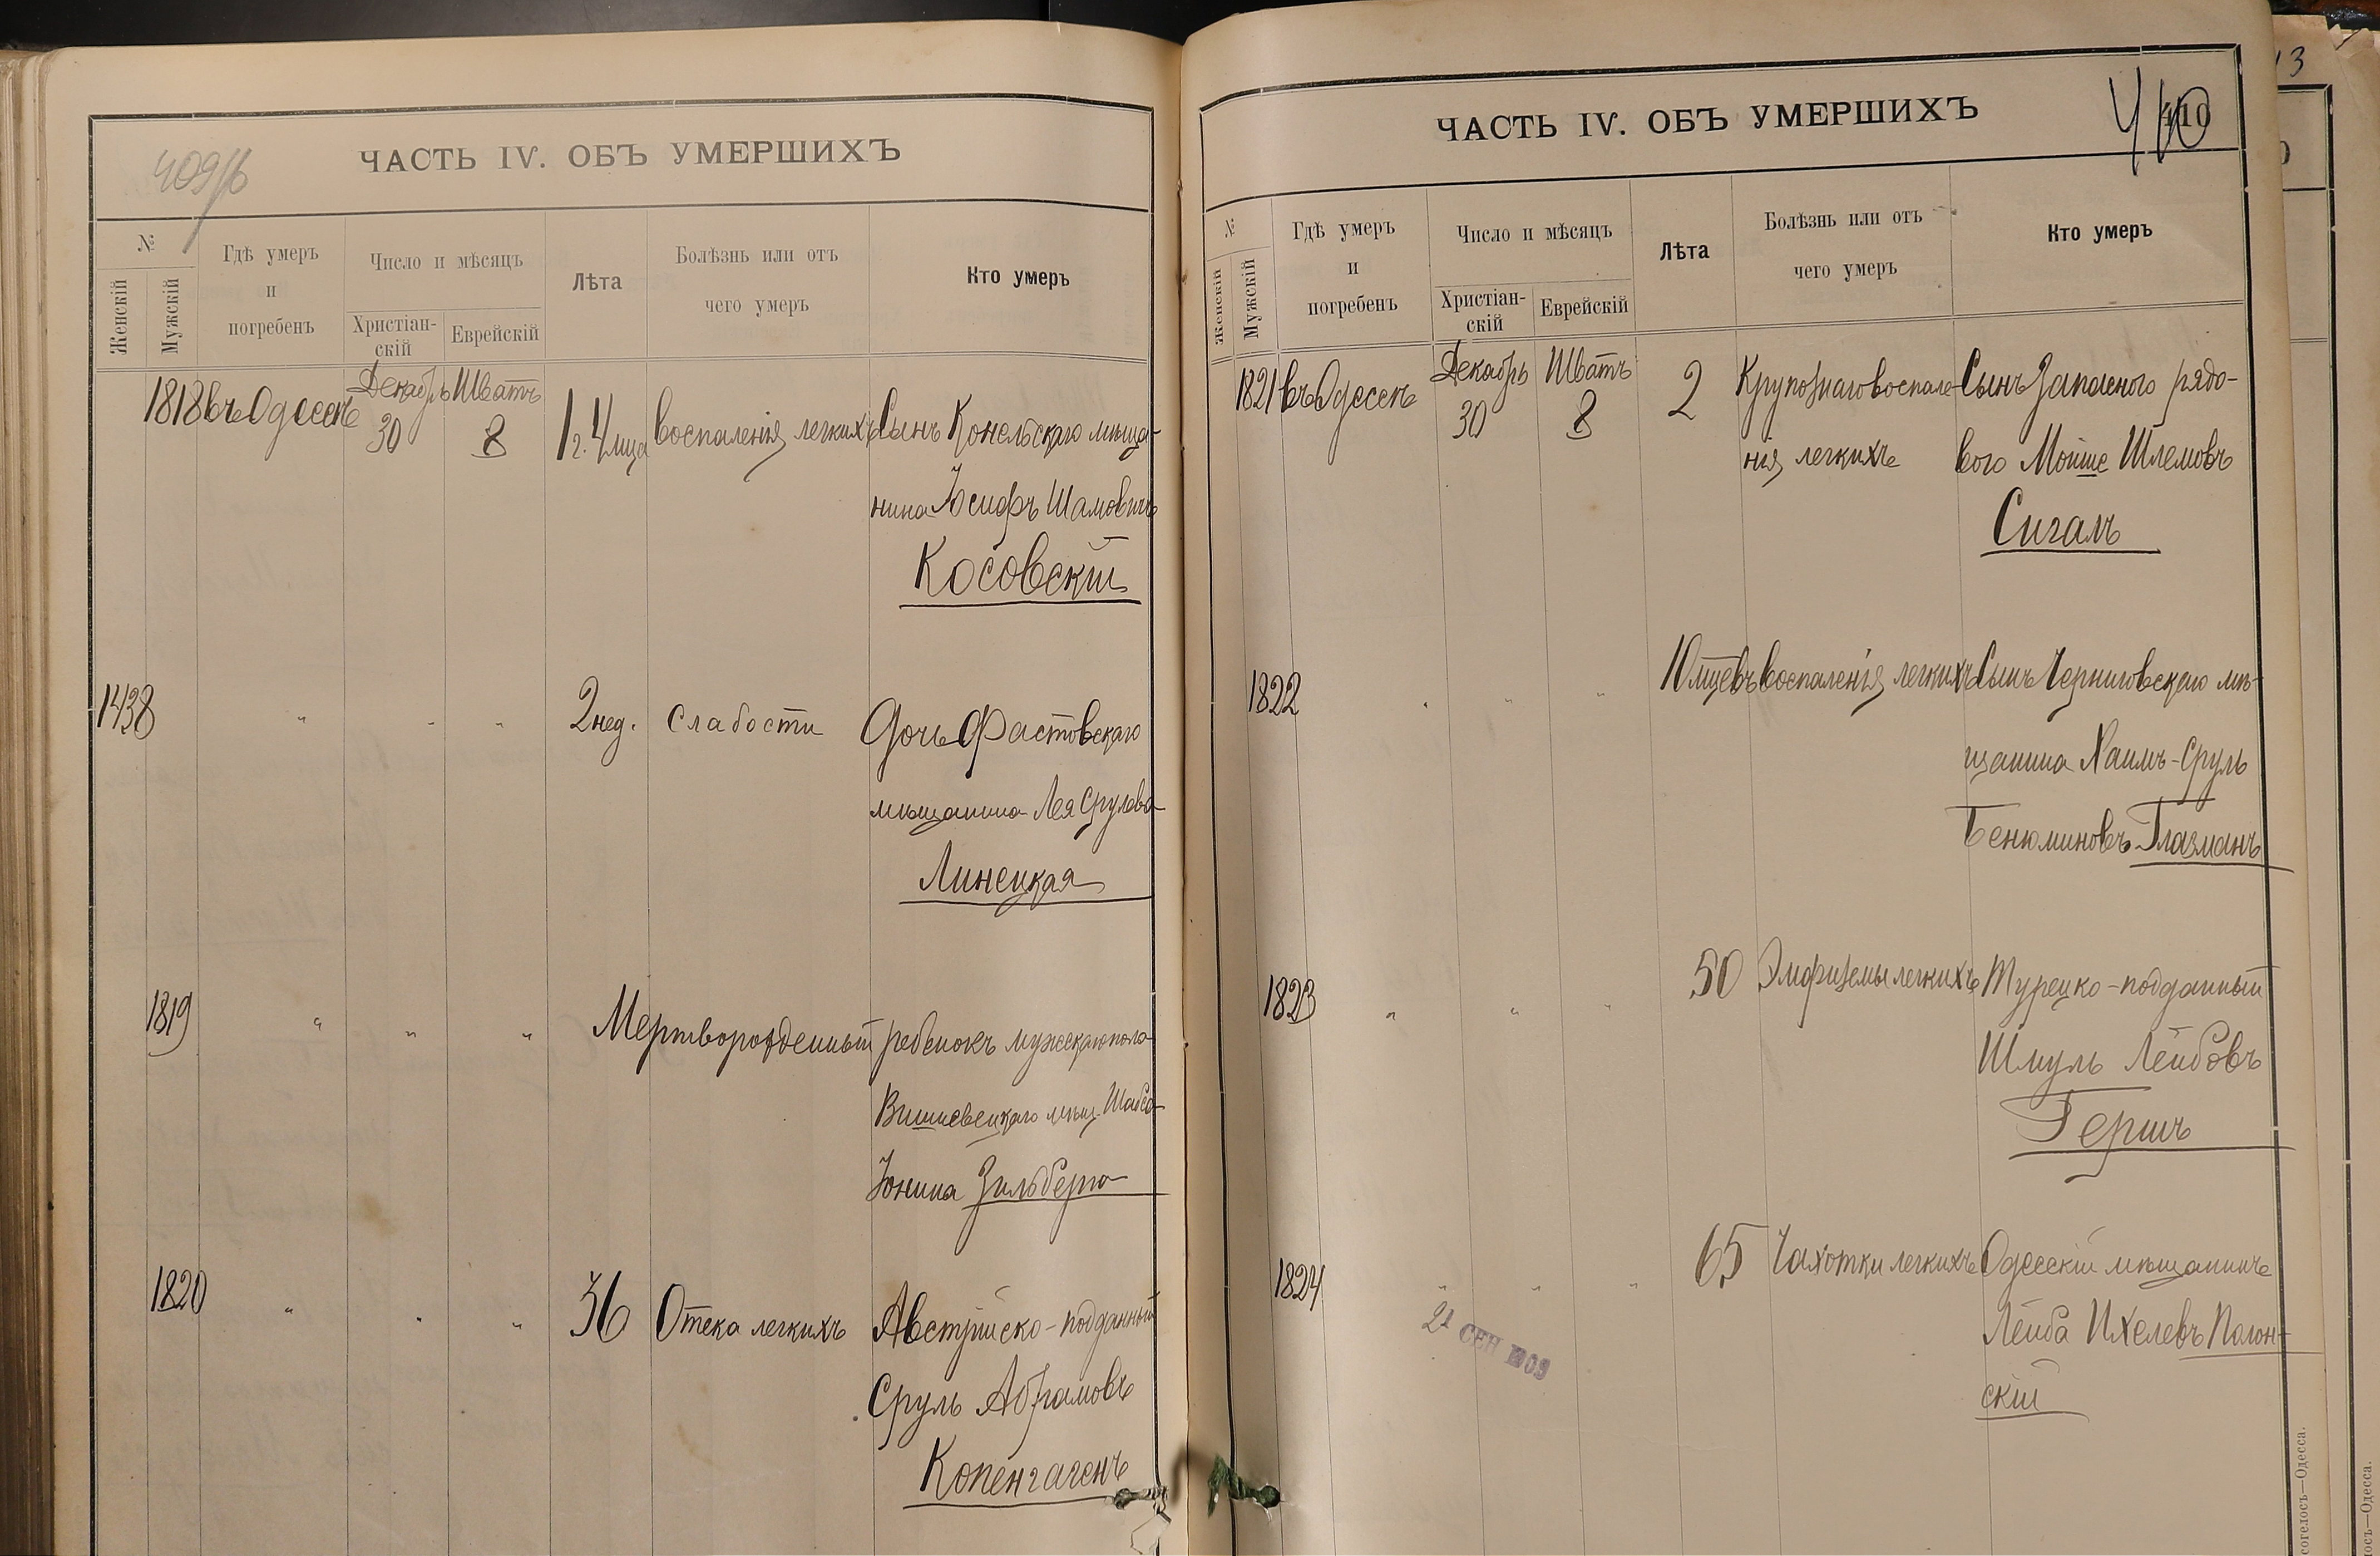 ЧАСТЬ IV. ОБЪ УМЕРШИХЪ
№
Женскій
Мужскій
Гдѣ умеръ
и
погребенъ
Число и мѣсяцъ
Христіан-
скій
Еврейскій
Лѣта
Болѣзнь или отъ
чего умеръ
Кто умеръ
1818 въ Одессѣ Декабрь 30 Шватъ 8 1 г. 4 мца воспаленія легкихъ Сынъ Конельскаго мѣща-
нина Іосифъ Шамовичъ
Косовскій
1438 " " " 2 нед. слабости Дочь Фастовскаго
мѣщанина Лея Срулева
Линецкая
1819 " " " Мертворожденный ребенокъ мужскаго пола
Вишневецкаго мѣщ. Шабса
Іонина Зильберга
1820 " " " 36 Отека легкихъ Австрійско-подданный
Сруль Абрамовъ
Копенгагенъ
ЧАСТЬ IV. ОБЪ УМЕРШИХЪ
410
410
№
Женскій
Мужскій
Гдѣ умеръ
и
погребенъ
Число и мѣсяцъ
Христіан-
скій
Еврейскій
Лѣта
Болѣзнь или отъ
чего умеръ
Кто умеръ
1821 въ Одессѣ Декабрь 30 Шватъ 8 2 Крупознаго воспале- Сынъ Запасного рядо-
нія легкихъ вого Мойше Шлемовъ
Сигалъ
1822 " " " 10 мцевъ воспаленія легкихъ Сынъ Черниговскаго мѣ-
щанина Хаимъ-Сруль
Бенюминовъ Глазманъ
1823 " " " 50 Эмфиземы легкихъ Турецко-подданный
Шмуль Лейбовъ
Гершъ
1824 " " " 65 Чахотки легкихъ Одесскій мѣщанинъ
Лейба Ихелевъ Полон-
скій
21 СЕН 1909